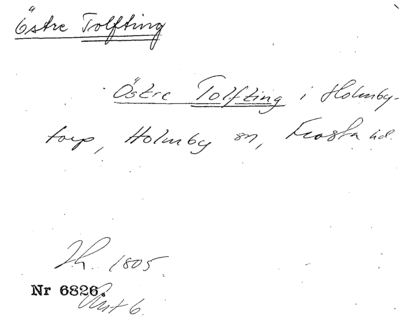 Östre Tolfting
Östre Tolfting i Holmby-
torp, Holmby sn, Frosta hd.
Sh. 1805.
Nr 6826.
Avt 6.